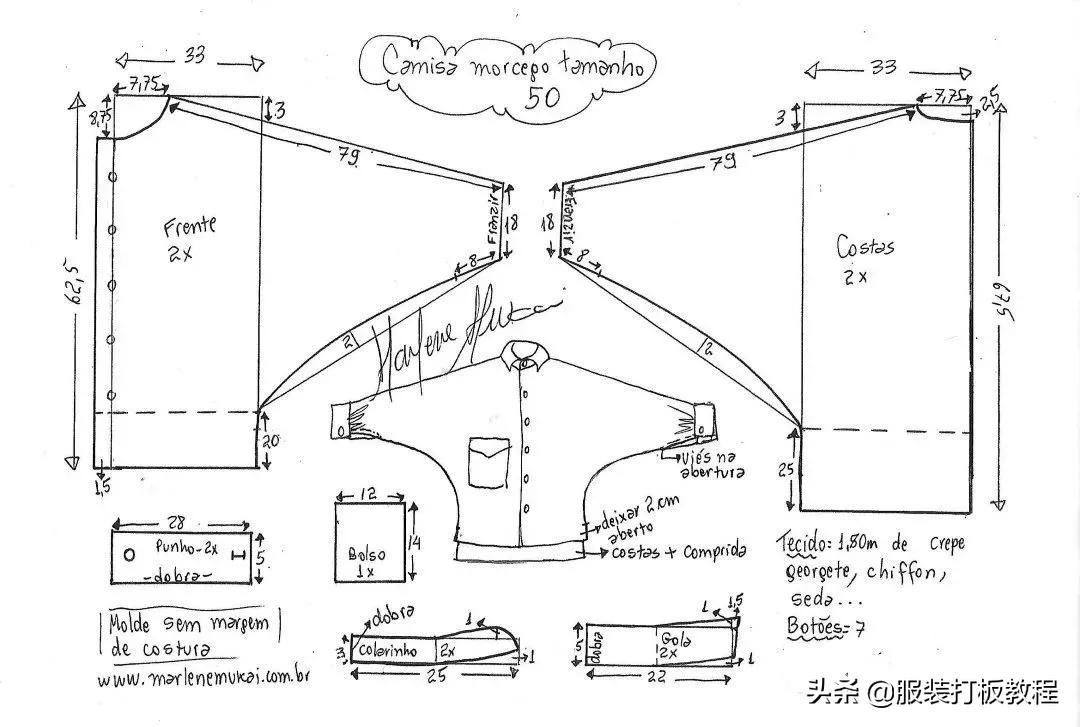 Camisa morcego tamanho
50
33
7,75
8,75
3
79
Frente
2x
Franzir
18
8
2
62,5
20
1,5
33
7,75
2,5
3
79
Costas
2x
18
8
2
67,5
25
Marlene Mukai
viés na
abertura
deixar 2 cm
aberto
costas + comprida
28
Punho-2x
-dobra-
5
12
Bolso
1x
14
Tecido: 1,80m de crepe
georgete, chiffon,
seda...
Botões= 7
Molde sem margem
de costura
www.marlenemukai.com.br
dobra
3
Colarinho
2x
1
1
25
1
1,5
5
dobra
Gola
2x
1
22
头条 @服装打板教程